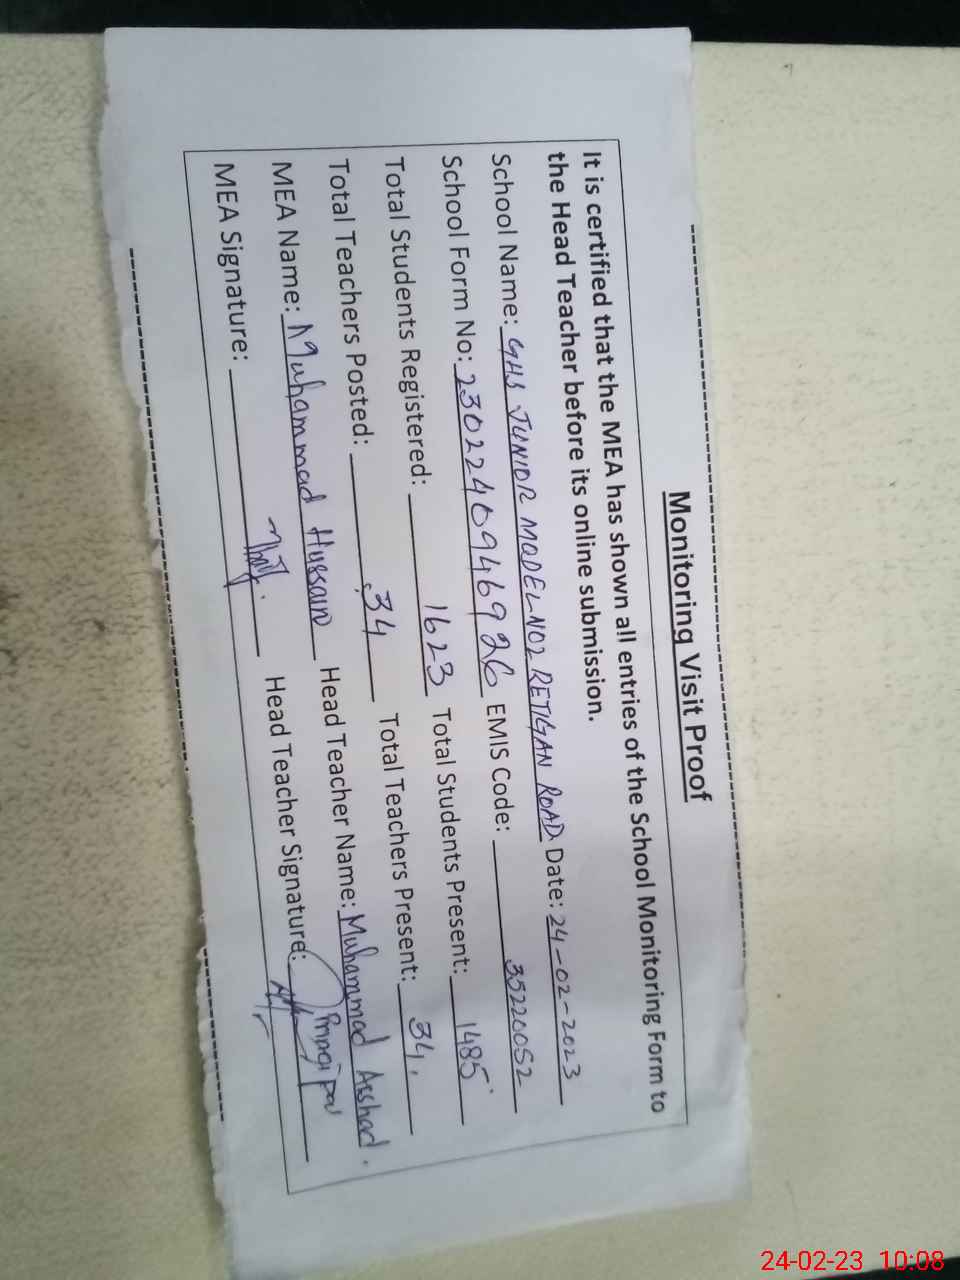 Monitoring Visit Proof
It is certified that the MEA has shown all entries of the School Monitoring Form to
the Head Teacher before its online submission.
School Name: GHS JUNIOR MODEL NO2 RETIGAN ROAD. Date: 24-02-2023
School Form No: 2302240946926 EMIS Code: 35220052
Total Students Registered: 1623 Total Students Present: 1485
Total Teachers Posted: 34 Total Teachers Present: 34
MEA Name: Muhammad Hussain Head Teacher Name: Muhammad Asshad.
MEA Signature: Head Teacher Signature: Principal
24-02-23 10:08